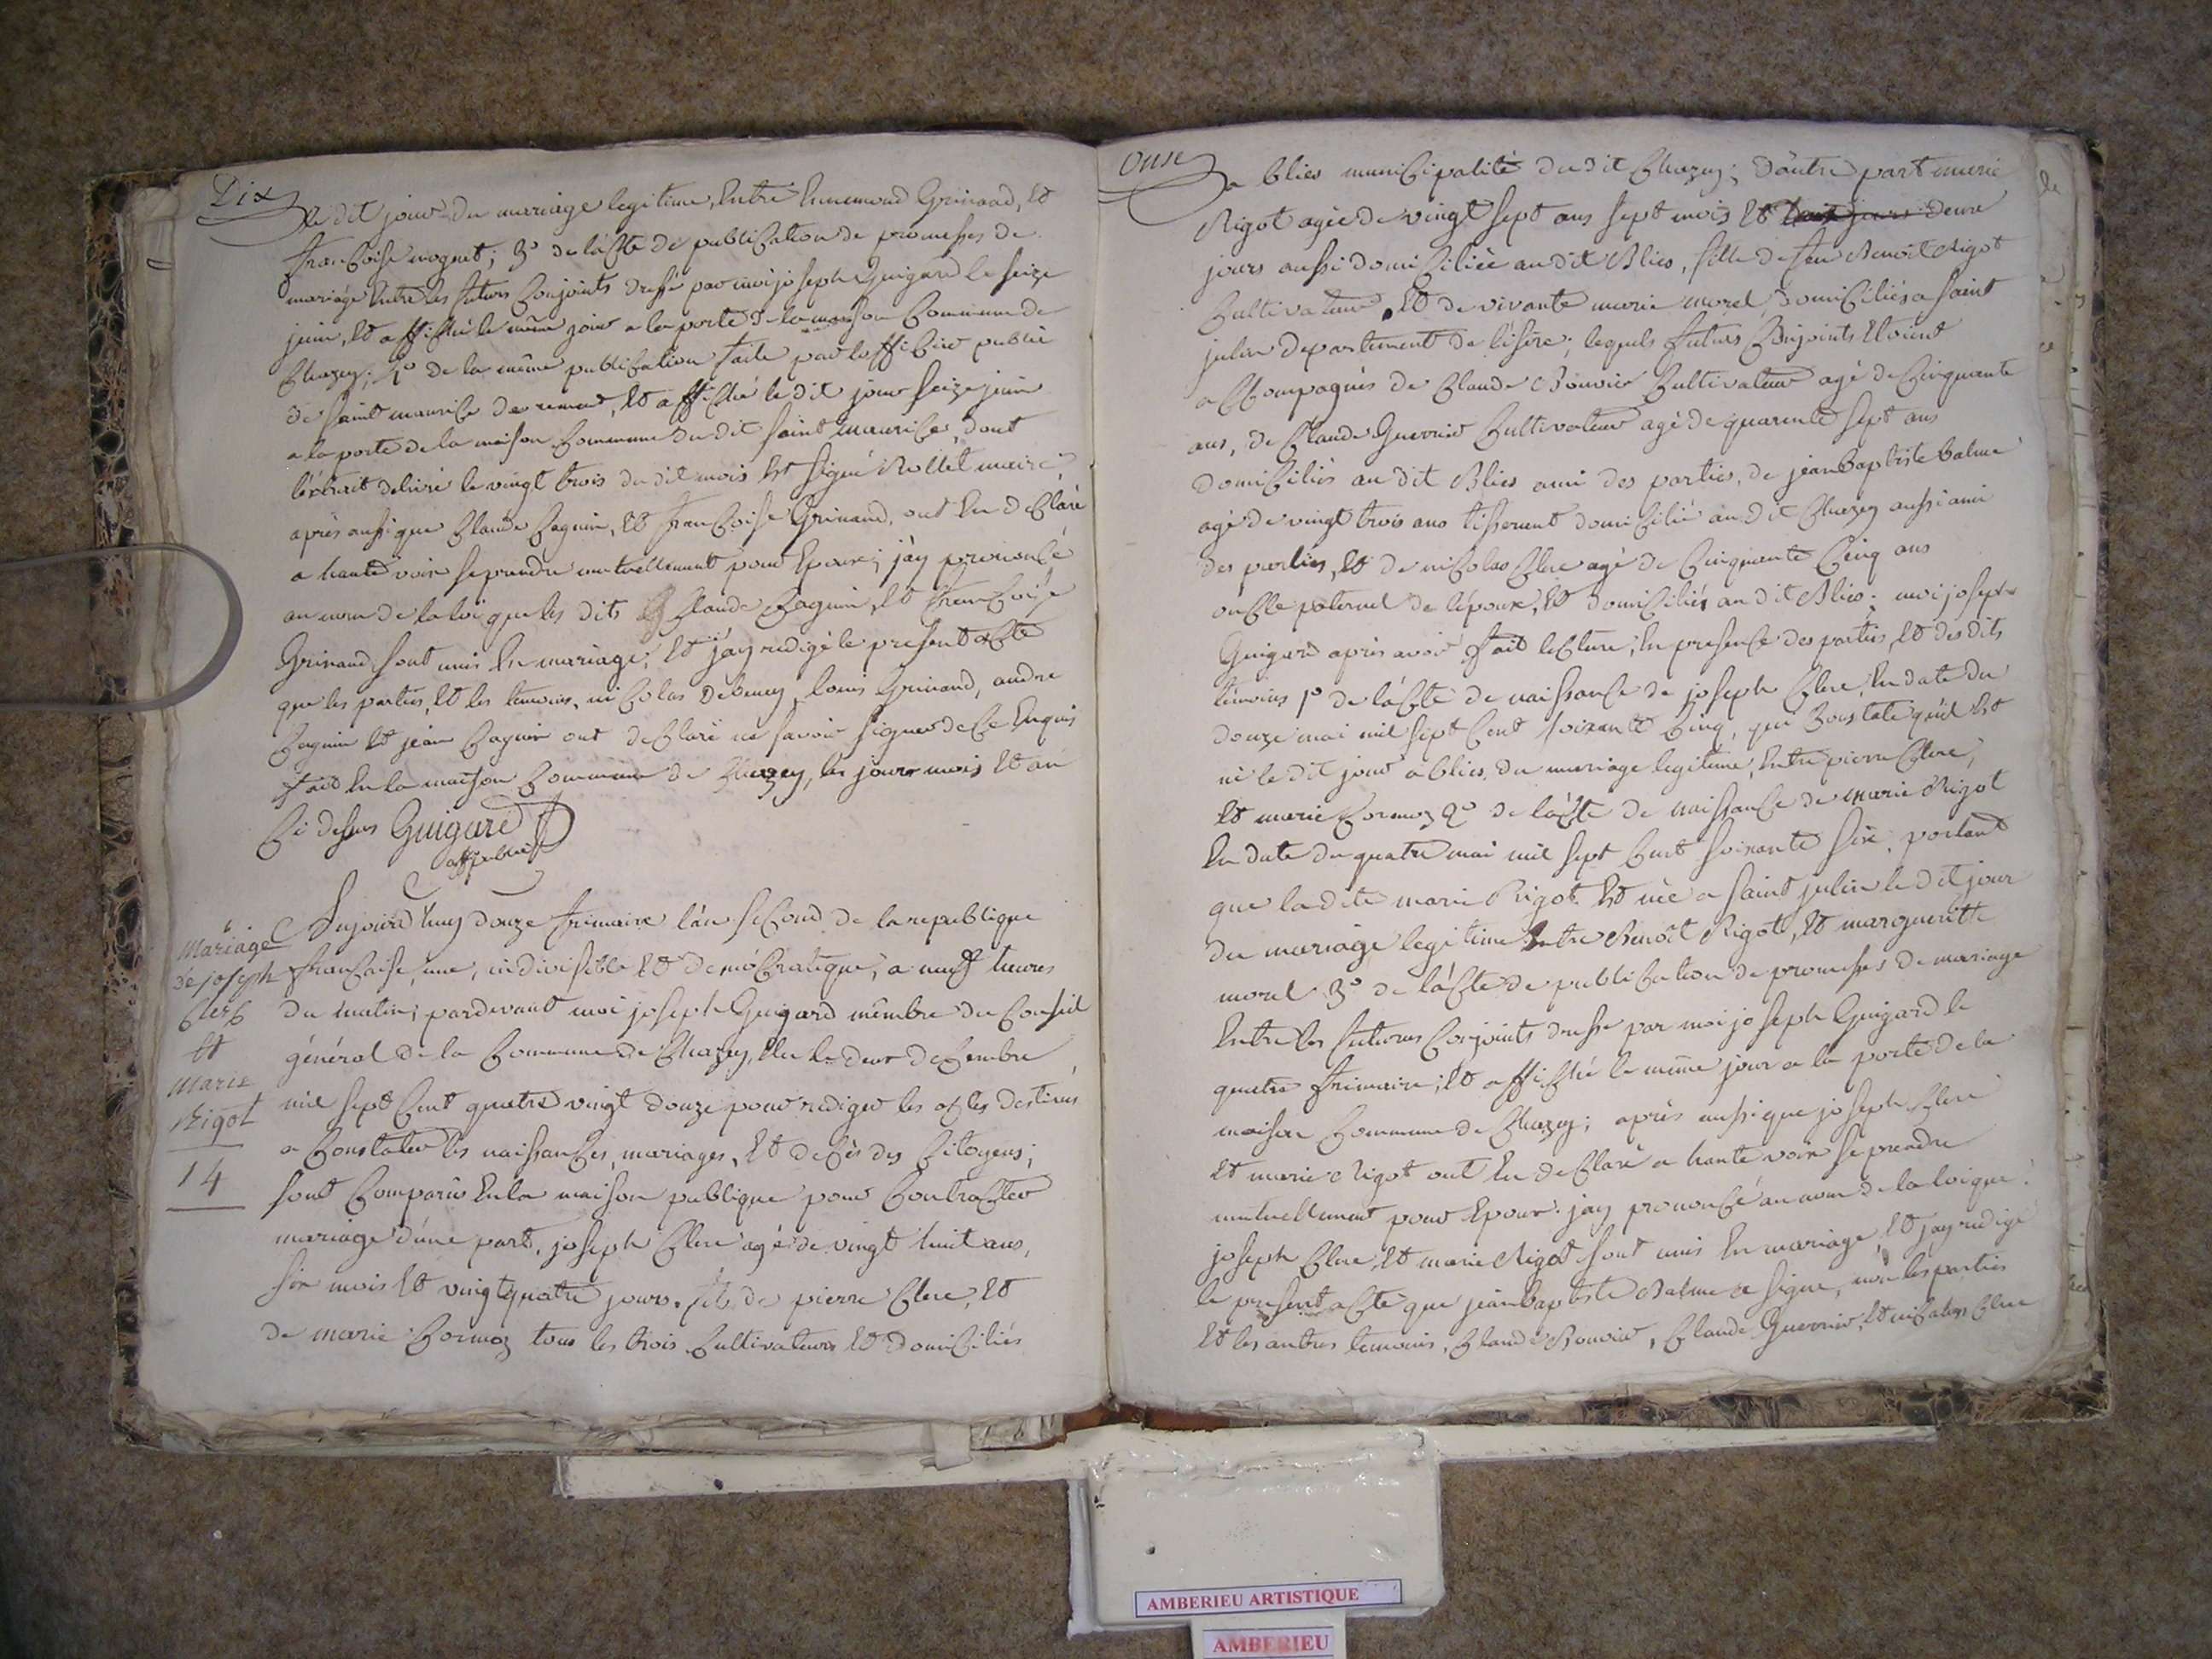 Dix
le dit jour du mariage legitime, Entre Ennemond Grinand, Et
francoise moguet; 3° de lácte de publication de promesses de
mariage Entre les futurs Conjoints dressé par moi joseph Guigard le seize
juin, Et affiché le même jour a la porte de la maison Commune de
Chazey; 4° de la même publication faite par lofficier public
de saint maurice de remens, Et affiché le dit jour seize juin
a la porte de la maison Commune du dit saint maurice, dont
léxtrait delivré le vingt trois du dit mois Est signé Rollet maire
après aussi que Claude Caguin, Et francoise Grinand, ont En declaré
a haute voix se prendre mutuellement pour Epoux; jáy prononcé
au nom de la loi que les dits Claude Caguin, Et francoise
Grinand sont unis En mariage; Et jáy redigé le present acte
que les parties, Et les temoins, nicolas Debeney, louis Grinand, andre
Caguin Et jean Caguin ont declaré ne savoir signer de ce Enquis
fait En la maison Commune de Chazey, les jour mois Et an
Ci dessus Guigard
off public
Mariage
de joseph
Clerc
Et
Marie
Rigot
14
Aujourd'huy douze frimaire l'án second de la republique
francaise, une, indivisible Et démocratique, a neuff heures
du matin; pardevant moi joseph Guigard membre du Conseil
général de la Commune de Chazey, Elu le deux decembre
mil sept Cent quatre vingt douze pour rediger les actes destinés
a Constater les naissances, mariages, Et decès des Citoyens;
sont Comparus En la maison publique pour Contracter
mariage d'une part, joseph Clerc agé de vingt huit ans,
six mois Et vingtquatre jours, fils de pierre Clerc, Et
de marie Cormoz tous les trois Cultivateurs Et domiciliés
Onse
a blies municipalité du dit Chazey; d'áutre part marie
Rigot agée de vingt sept ans sept mois Et huit jours deux
jours aussi domiciliée au dit Blies, fille de feu Benoit Rigot
Cultivateur, Et de vivante marie morel, domiciliés a saint
julin departement de l'isere; lequels futurs Conjoints Etoient
accompagnés de Claude Bouvier Cultivateur agé de Cinquante
ans, de Claude Guerrier Cultivateur agé de quarente sept ans
domiciliés au dit Blies ami des parties, de jean baptiste balme
agé de vingt trois ans tisserent domicilié au dit Chazey aussi ami
des parties, Et de nicolas Clerc agé de Cinquante Cinq ans
oncle paternel de l'époux, Et domiciliés au dit Blies; moi joseph
Guigard après avoir fait lecture, En presence des parties, Et des dits
témoins 1° de l'ácte de naissance de joseph Clerc, En date du
douze mai mil sept Cent soixante Cinq, qui Constate qu'il Est
né le dit jour a blies, du mariage legitime, Entre pierre Clerc,
Et marie Cormoz 2° de l'ácte de naissance de marie Rigot
En date du quatre mai mil sept Cent soixante six, portant
que la dite marie Rigot Est née a saint julin le dit jour
du mariage legitime Entre Benoit Rigot, Et margueritte
morel 3° de l'ácte de publication de promesses de mariage
Entre les futurs Conjoints dressé par moi joseph Guigard le
quatre frimaire; Et affiché le même jour a la porte de la
maison Commune de Chazey; après aussi que joseph Clerc
Et marie Rigot ont En declaré a haute voix se prendre
mutuellement pour Epoux. jáy prononcé au nom de la loi que
joseph Clerc, Et marie Rigot sont unis En mariage, Et jay redigé
le present acte que jean baptiste Balme a signé, non les parties
Et les autres temoins, Claude Bouvier, Claude Guerrier, Et nicolas Clerc
AMBERIEU ARTISTIQUE
AMBERIEU